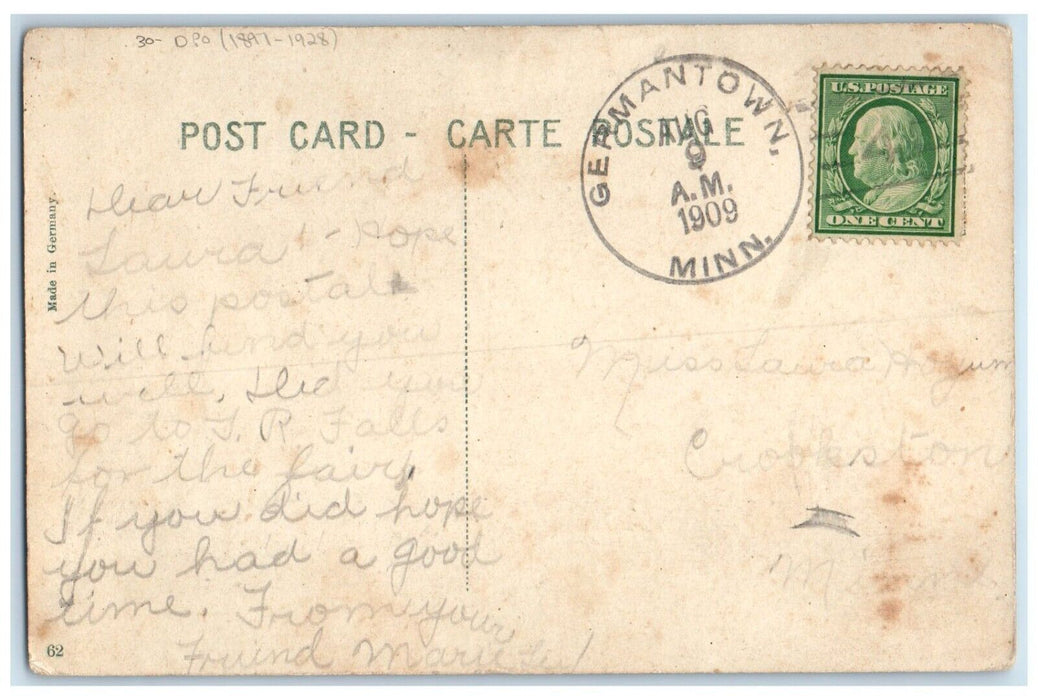 30- DPO (1897-1928)
POST CARD - CARTE POSTALE
GERMANTOWN,
AUG
9
A.M.
1909
MINN.
U.S.POSTAGE
ONE CENT
Made in Germany.
Dear Friend
Laura - hope
this postal
will find you
well, Did you
go to T. R. Falls
for the fair,
If you did hope
you had a good
time. From your
Friend
Miss Laura
Crookston
Minn
62